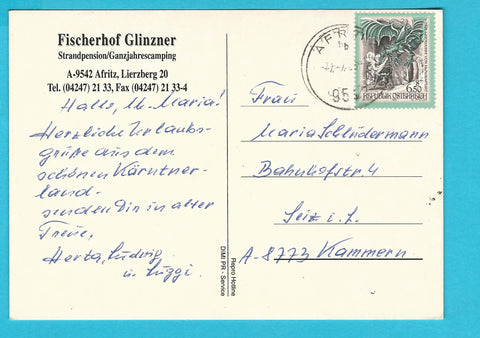 Fischerhof Glinzner
Strandpension/Ganzjahrescamping
A-9542 Afritz, Lierzberg 20
Tel. (04247) 21 33, Fax (04247) 21 33-4
Hallo, M. Maria!
Herzliche Urlaubs-
grüße aus dem
schönen Kärntner-
land-
senden Dir in alter
Treue,
Herta, Ludwig
u. Luggi.
Repro Hotline
DIMI PR - Service
AFRITZ
6.50
REPUBLIK ÖSTERREICH
Frau
Maria Schlüdermann
Bahnhofstr. 4
Seiz i. L.
A-8773 Kammern